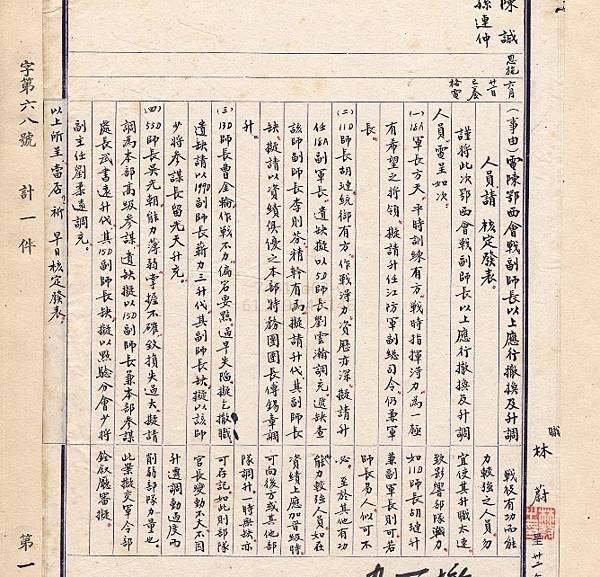 陳誠
孫連仲
恩施
六月
廿日
已參
格電
(事由)電陳鄂西會戰副師長以上應行撤換及升調
人員請 核定發表。
謹將此次鄂西會戰副師長以上應行撤換及升調
人員電呈如次。
(一)18A軍長方天，平時訓練有方，戰時指揮得力，為一極
有希望之將領。擬請升任江防軍副總司令仍兼軍
長。
(二)11D師長胡璉統御有方，作戰得力，資歷亦深，擬請升
任18A副軍長。遺缺擬以5D師長劉雲瀚調充。遞缺查
該師副師長李則芬，精幹有為，擬請升代。其副師長
缺，擬請以資績俱優之本部特務團團長傅錫章調
升。
(三)13D師長曹金輪作戰不力，偏岩要點過早失陷，擬乞撤職
遺缺請以199D副師長靳力三升代。其副師長缺擬以該師
少將參謀長留光天升充。
(四)55D師長吳光朝能力薄弱，掌握不確，致損失過大。擬請
調為本部高級參謀，遺缺擬以15D副師長兼本部參謀
處長武書遠升代。其15D副師長缺擬以點驗分會少將
副主任劉柔遠調充。
以上所呈當否？祈 早日核定發表。
職 林蔚
呈 廿二
戰役有功而能
力較強之人員，勿
宜使其升職太速
致影響部隊戰力
如11D師長胡璉升
兼副軍長則可，若
師長易人似可不
必。至於其他有功
能力較強人員，如在
資績上應加晉級時
可向後方或其他部
隊調升，一時無缺亦
可存記，如此則部隊
官長變動不大，不因
升遷調動過度而
削弱部隊力量也。
此案擬交軍令部
銓敘廳審擬。
字第六八號 計一件
第一